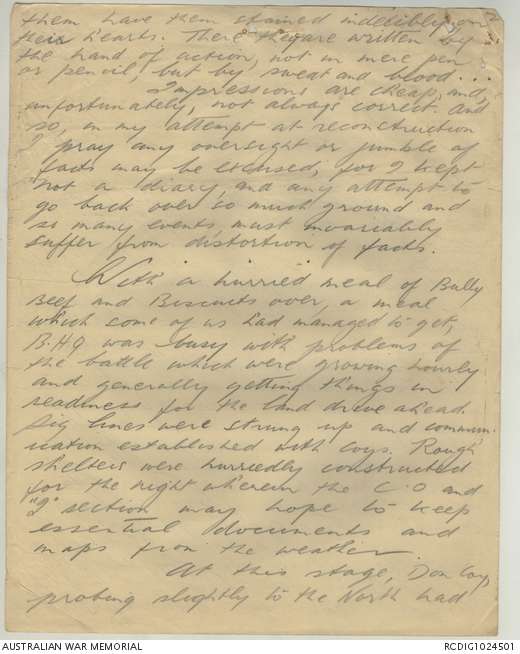 them have them stained indelibly on
their hearts. There they are written by
the hand of action, not in mere pen
or pencil, but by sweat and blood...
Impressions are cheap, and,
unfortunately, not always correct. And
so, in my attempt at reconstruction
I pray any oversight or jumble of
facts may be excused, for I kept
not a diary, and any attempt to
go back over so much ground and
so many events must invariably
suffer from distortion of facts.
With a hurried meal of Bully
Beef and Biscuits over, a meal
which some of us had managed to get,
B.HQ was busy with problems of
the battle which were growing hourly
and generally getting things in
readiness for the land drive ahead.
Sig lines were strung up and commun-
ication established with Coys. Rough
shelters were hurriedly constructed
for the night wherein the C.O and
"I" section may hope to keep
essential documents and
maps from the weather.
At this stage, Don Coy,
probing slightly to the North had
AUSTRALIAN WAR MEMORIAL
RCDIG1024501